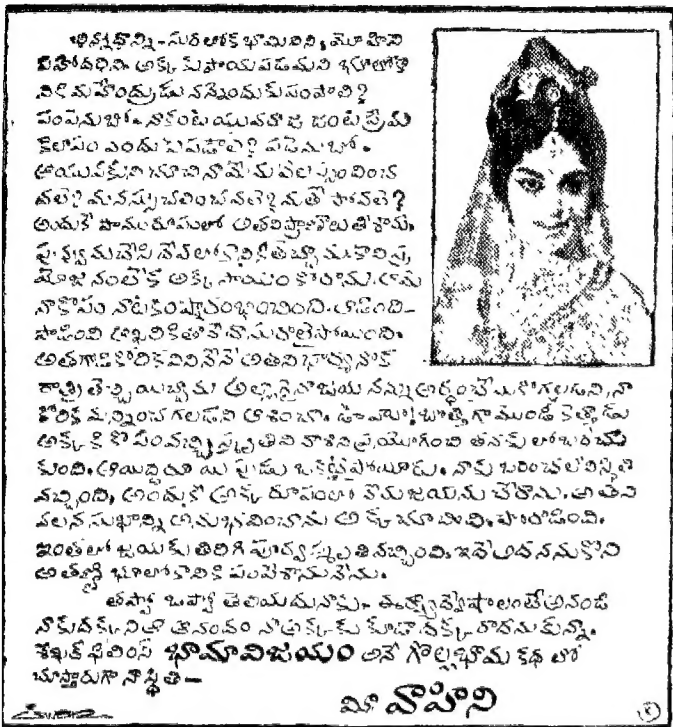 భిన్నోదాన్ని - సురలోక భామినిని, మోహిని
సహోదరిని. అక్కకు సాయపడమని భూలోకా
నికి మహేంద్రుడు నన్నెందుకు పంపాలి?
పంపెనుబో. నాకంట యువరాజు జంట ప్రేమ
కలాపం ఎందుకు పడాలి? పడెనుబో.
ఆ యువకుని చూచి నా మేను వల స్పందించ
వలె? మనస్సు చలించవలె? మతి పోవలె?
అందుకే పాము రూపంలో అతని ప్రాణాలు తీశాను.
పువ్వును చేసి దేవలోకానికి తెచ్చాను కాని ప్ర
యోజనం లేక అక్క సాయం కోరాను. ఆమె
నా కోసం నాటకం ప్రారంభించింది. ఆడింది-
పాడింది ఆఖరికి తానే దాసురాలైపోయింది.
అతగాడి కోరిక విని నేనే అతని భార్యనొక
రాత్రి తెచ్చి యిచ్చాను అలానైనా జయ నన్ను అర్థం చేసుకోగలడని, నా
కోరిక మన్నించగలడని ఆశించా. ఊహూ! బొత్తిగా మొండికెత్తాడు
అక్కకి కోపంవచ్చి స్మృతిని నాశని ప్రయోగించి తనకు లోబరచు
కుంది. ఆ యిద్దరూ యిప్పుడు ఒకట్టైపోయారు. నాకు భరించలేని స్థితి
వచ్చింది, అందుకే అక్క రూపంలో నేను జయను చేరాను. అతని
వలన సుఖాన్ని అనుభవించాను అక్క చూచింది. పోరాడింది.
ఇంతలో జయకు తిరిగి పూర్వస్మృతి వచ్చింది. ఇదే అదననుకొని
అతణ్ణి భూలోకానికి పంపేశాను నేను.
తప్పో ఒప్పో తెలియదు నాకు. ఈర్ష్యాద్వేషాలంతే అనండి
నాకు దక్కని ఆ ఆనందం నా అక్కకు కూడా దక్కరాదనుకున్నా.
శేఖర్ ఫిలింస్ భామావిజయం అనే గొల్లభామ కథలో
చూస్తారుగా నా స్థితి-
మీ వాహిని